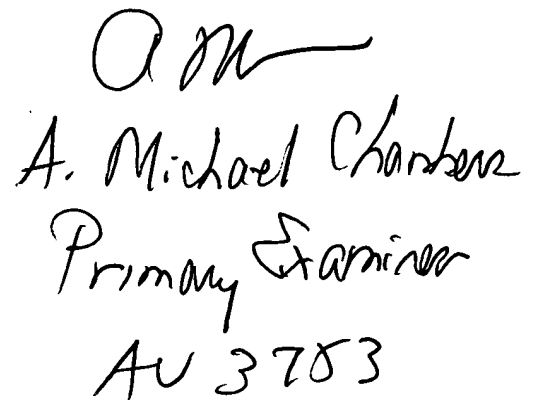 A. Michael Chambers
Primary Examiner
AU 3753